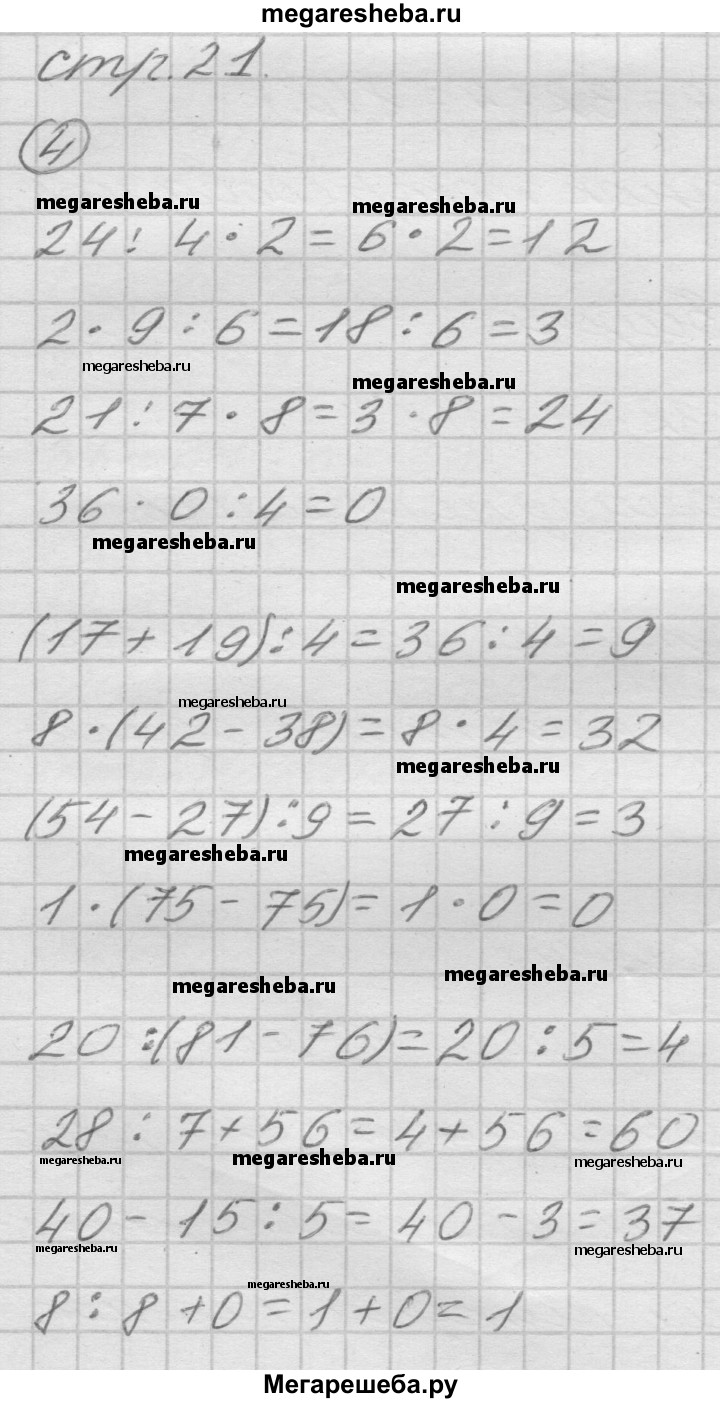 megaresheba.ru
стр. 21.
4
megaresheba.ru megaresheba.ru
24 : 4 · 2 = 6 · 2 = 12
2 · 9 : 6 = 18 : 6 = 3
megaresheba.ru megaresheba.ru
21 : 7 · 8 = 3 · 8 = 24
36 · 0 : 4 = 0
megaresheba.ru
megaresheba.ru
(17 + 19) : 4 = 36 : 4 = 9
megaresheba.ru
8 · (42 - 38) = 8 · 4 = 32
megaresheba.ru
(54 - 27) : 9 = 27 : 9 = 3
megaresheba.ru
1 · (75 - 75) = 1 · 0 = 0
megaresheba.ru megaresheba.ru
20 : (81 - 76) = 20 : 5 = 4
28 : 7 + 56 = 4 + 56 = 60
megaresheba.ru megaresheba.ru megaresheba.ru
40 - 15 : 5 = 40 - 3 = 37
megaresheba.ru megaresheba.ru
megaresheba.ru
8 : 8 + 0 = 1 + 0 = 1
Мегарешеба.ру